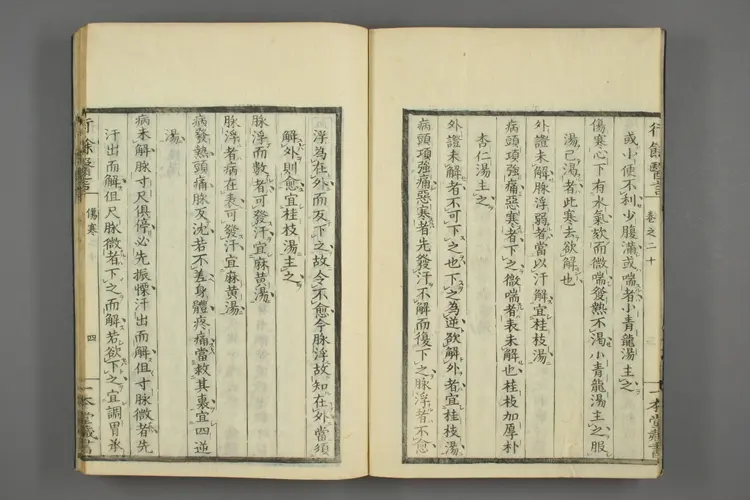 行餘醫言 卷之二十 一本堂藏書
或小便不利少腹滿或喘者小青龍湯主之
傷寒心下有水氣欬而微喘發熱不渴小青龍湯主之服
湯已渴者此寒去欲解也
外證未解脉浮弱者當以汗解宜桂枝湯
病頭項強痛惡寒者下之微喘者表未解也桂枝加厚朴
杏仁湯主之
外證未解者不可下之也下之為逆欲解外者宜桂枝湯
病頭項強痛惡寒者先發汗不解而復下之脉浮者不愈
浮為在外而反下之故令不愈今脉浮故知在外當須
解外則愈宜桂枝湯主之
脉浮而數者可發汗宜麻黄湯
脉浮者病在表可發汗宜麻黄湯
病發熱頭痛脉反沈若不差身體疼痛當救其裏宜四逆
湯
病未解脉寸尺俱停必先振慄汗出而解但寸脉微者先
汗出而解但尺脉微者下之而解若欲下之宜調胃承
行餘醫言 傷寒 四 一本堂藏書